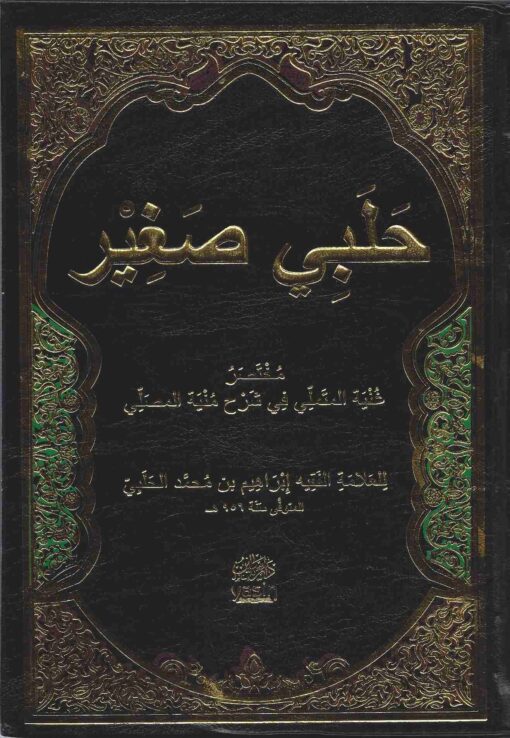 حَلَبِي صَغِيْر
مُخْتَصَرُ
غُنْيَة المتَمَلِّي فِي شَرْح مُنْيَة المصَلِّي
لِلعَلامَةِ الفَقِيه إبْرَاهِيم بن مُحمَّد الحَلَبِيّ
المتوفَّى سنَة ٩٥٦ هـ
دار ياسين
yasin